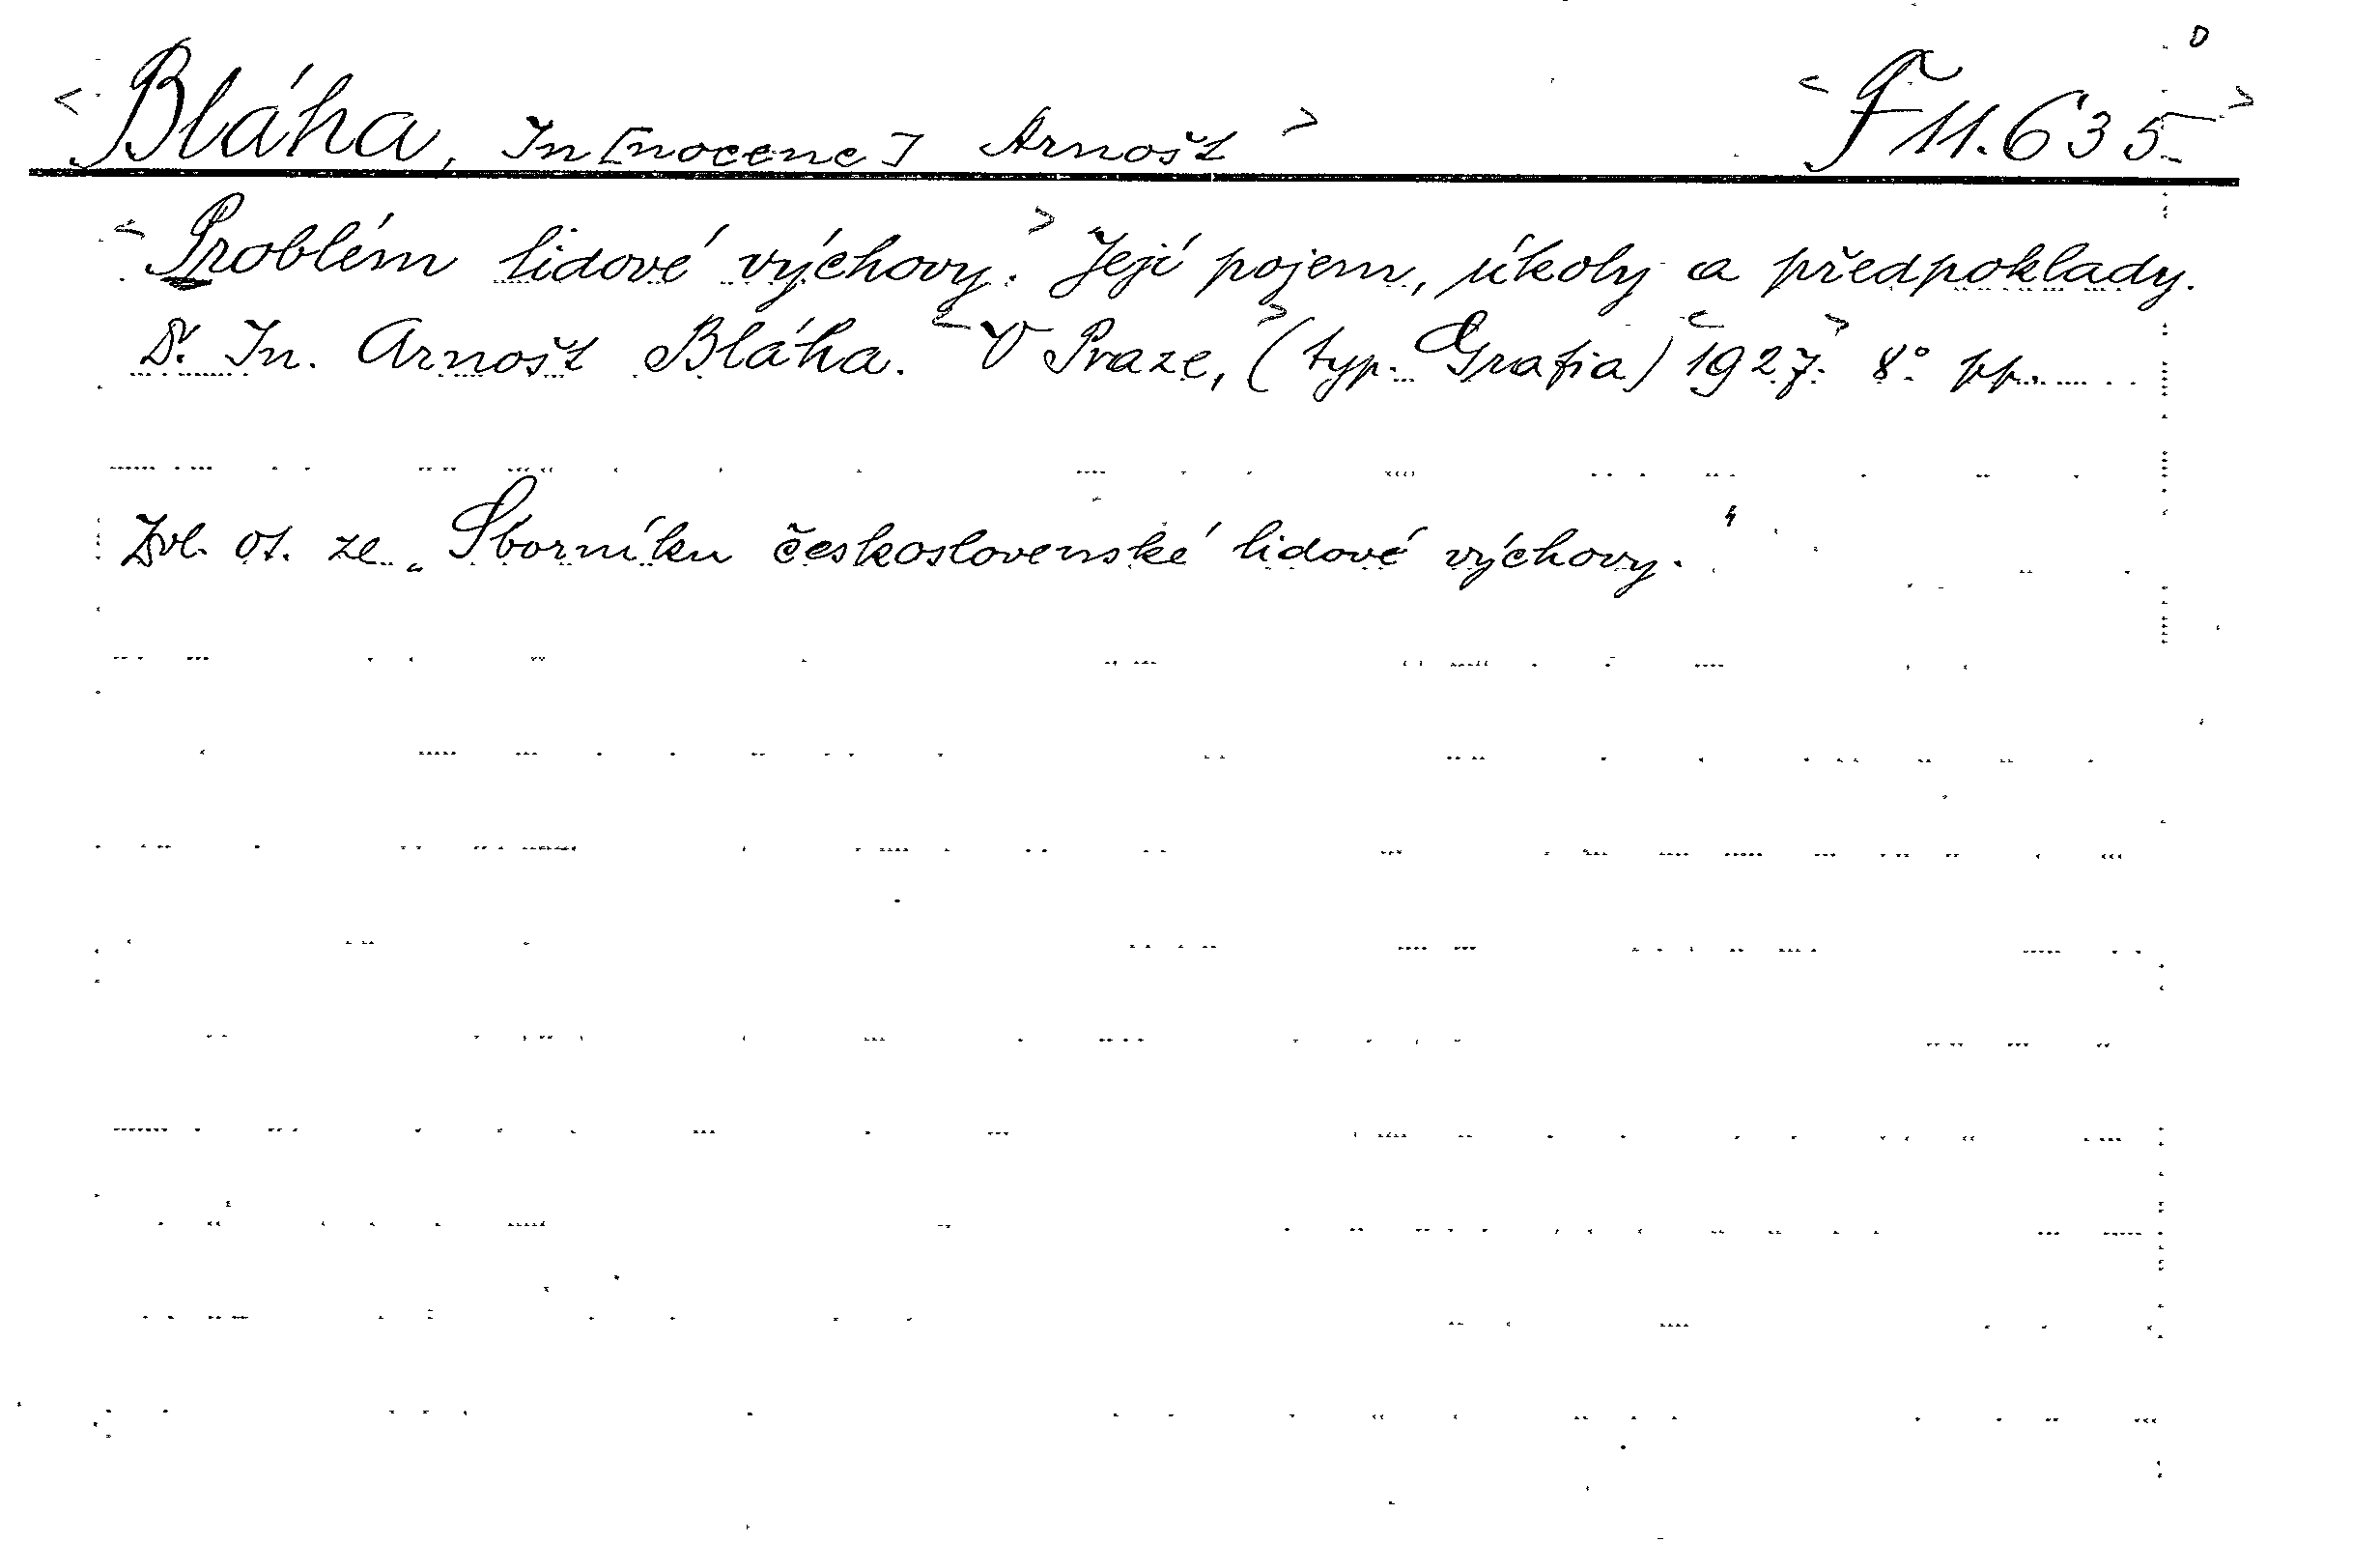 <Bláha, In[nocenc] Arnošt> <F 11.635>
<Problém lidové výchovy.> Její pojem, úkoly a předpoklady.
Dr. In. Arnošt Bláha. <V Praze,> (typ. Grafia) <1927.> 8°. pp.
Zvl. ot. ze „Sborníku československé lidové výchovy.“